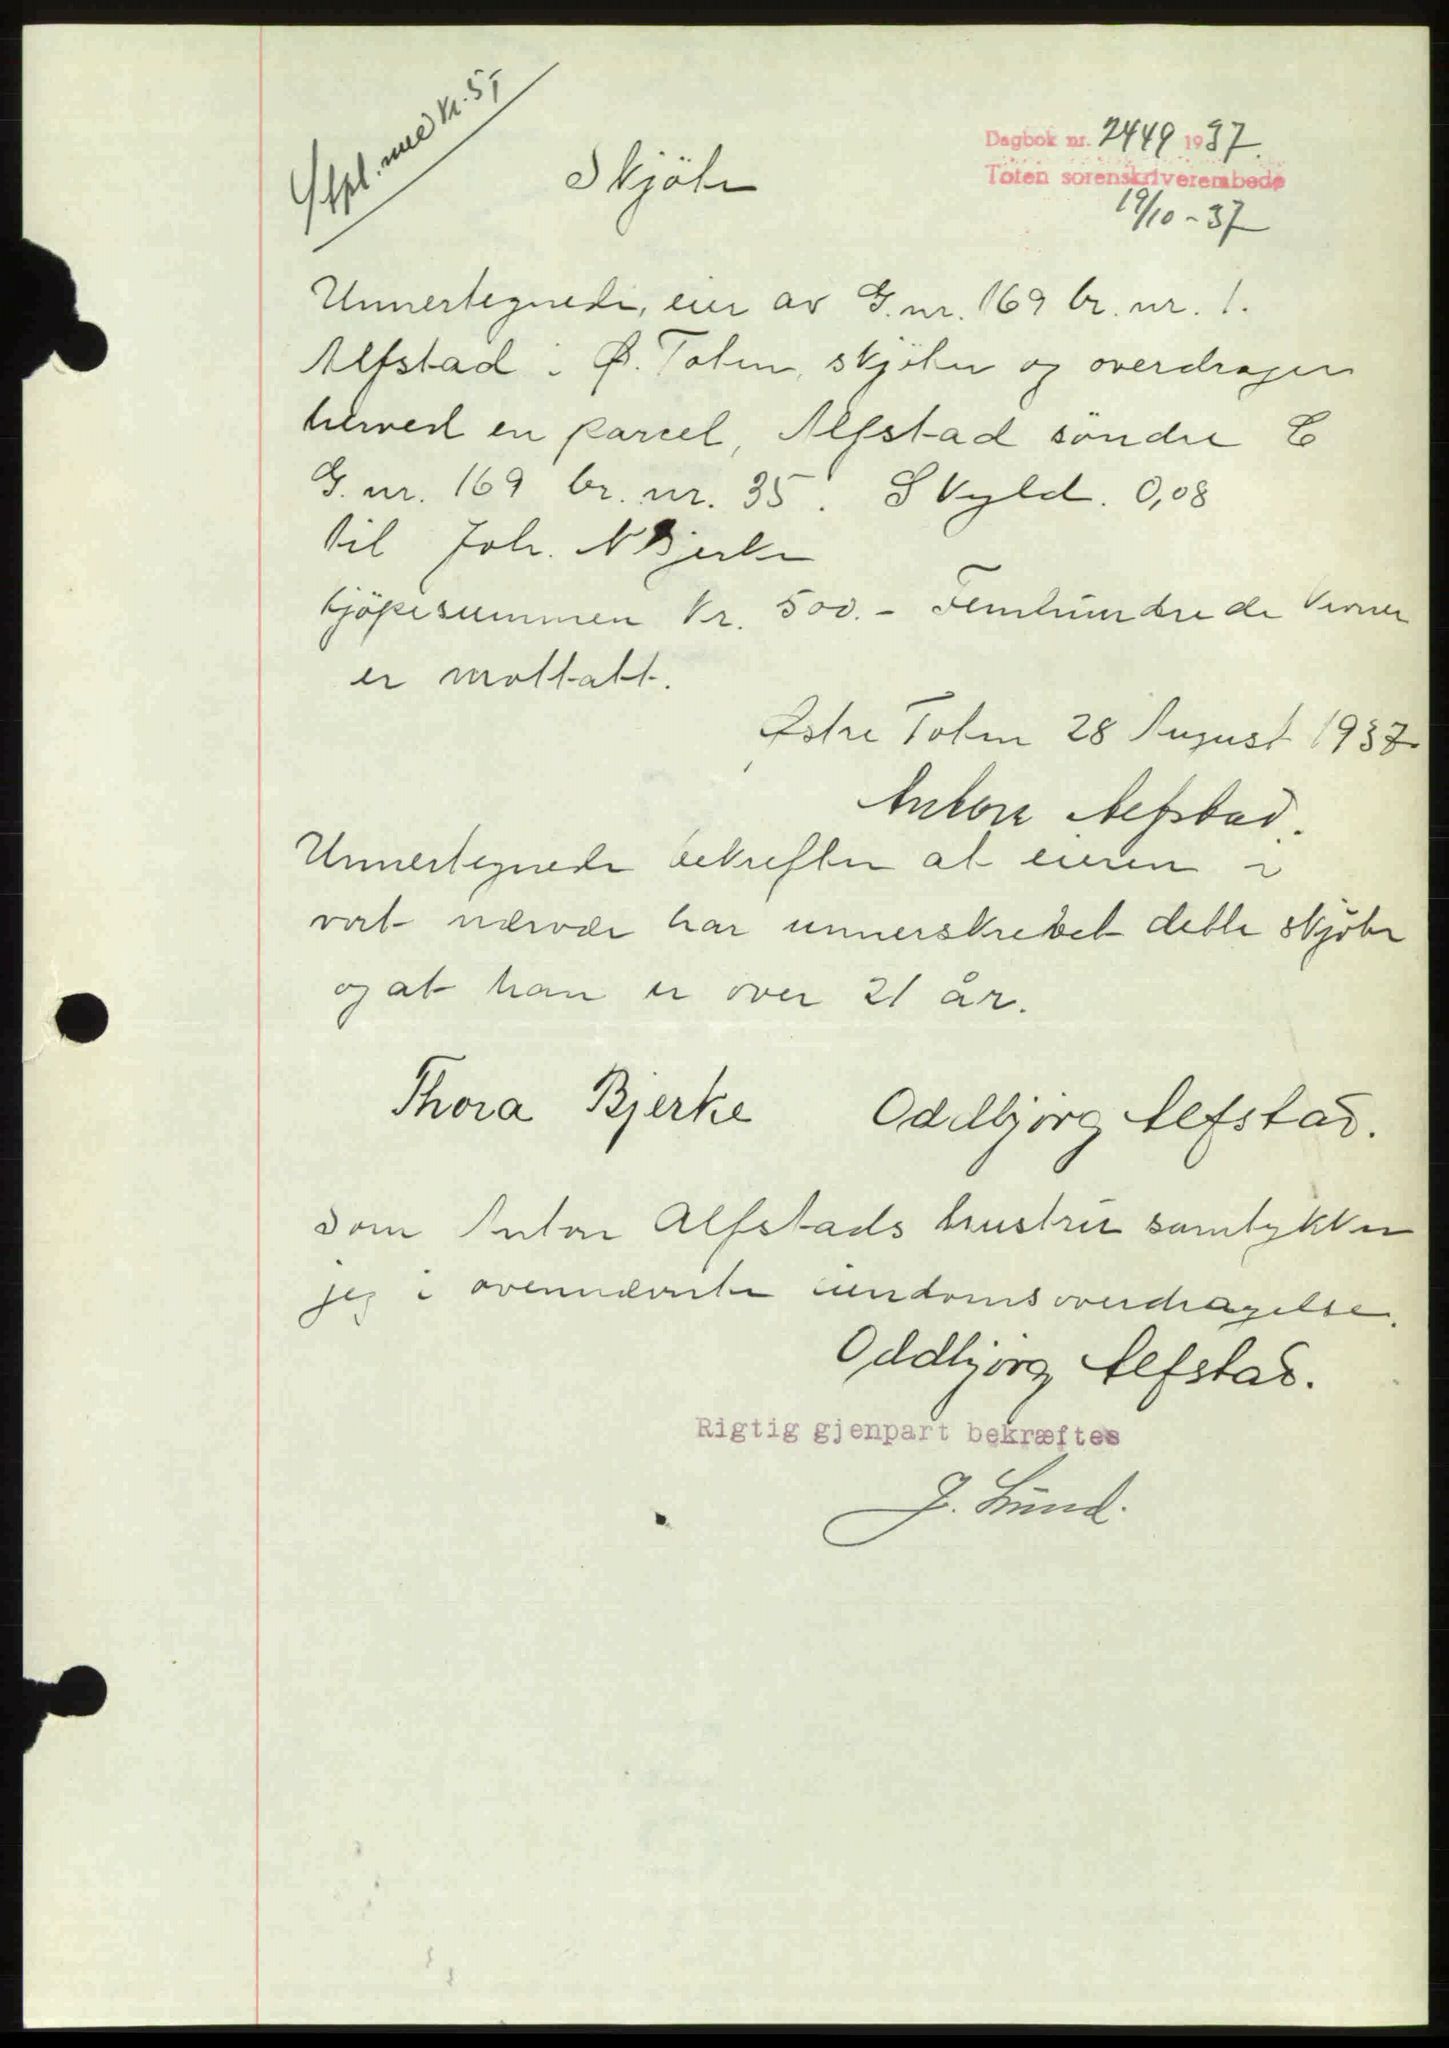 Stpl. med Kr. 5,-
Dagbok nr. 2449 1937.
Toten sorenskriverembede
19/10 - 37
Skjöte
Unnertegnede, eier av G.nr. 169 br. nr. 1.
Alfstad i Ø. Toten, skjöter og overdrager
herved en parcel, Alfstad söndre C
G. nr. 169 br. nr. 35. Skyld. 0,08
til Joh. N Bjerke
kjöpesummen kr. 500.- Femhundrede kroner
er mottatt.
Østre Toten 28 August 1937
Anton Alfstad.
Unnertegnede bekrefter at eieren i
vort nærvær har unnerskrevet dette skjöte
og at han er over 21 år.
Thora Bjerke Oddbjörg Alfstad.
Som Anton Alfstads hustru samtykker
jeg i ovennevnte eiendomsoverdragelse.
Oddbjörg Alfstad.
Rigtig gjenpart bekræftes
J. Lund.